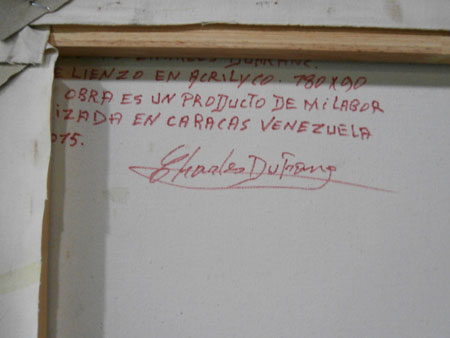 E LIENZO EN ACRILYCO. 180X90
OBRA ES UN PRODUCTO DE MI LABOR
IZADA EN CARACAS VENEZUELA
075.
Charles DuFrang